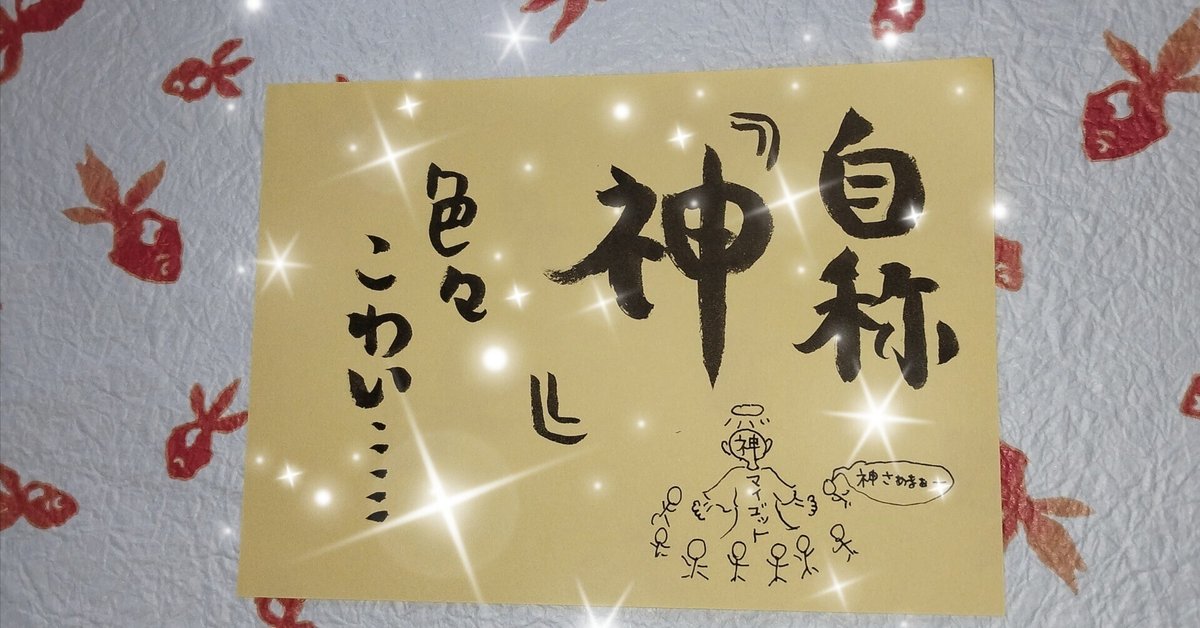 自称
『神』
色々
こわい……
神
マイゴット
神さぁまぁー